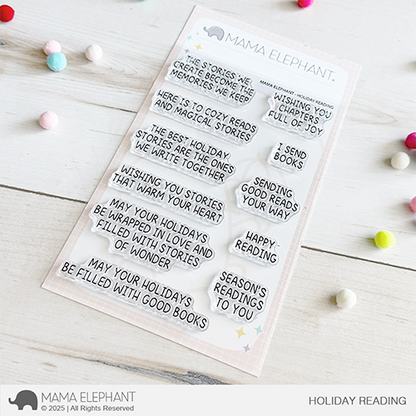 MAMA ELEPHANT
MAMA ELEPHANT - HOLIDAY READING
THE STORIES WE
CREATE BECOME THE
MEMORIES WE KEEP
WISHING YOU
CHAPTERS
FULL OF JOY
HERE IS TO COZY READS
AND MAGICAL STORIES
THE BEST HOLIDAY
STORIES ARE THE ONES
WE WRITE TOGETHER
I SEND
BOOKS
WISHING YOU STORIES
THAT WARM YOUR HEART
SENDING
GOOD READS
YOUR WAY
MAY YOUR HOLIDAYS
BE WRAPPED IN LOVE AND
FILLED WITH STORIES
OF WONDER
HAPPY
READING
MAY YOUR HOLIDAYS
BE FILLED WITH GOOD BOOKS
SEASON'S
READINGS
TO YOU
MAMA ELEPHANT
© 2025 | All Rights Reserved
HOLIDAY READING